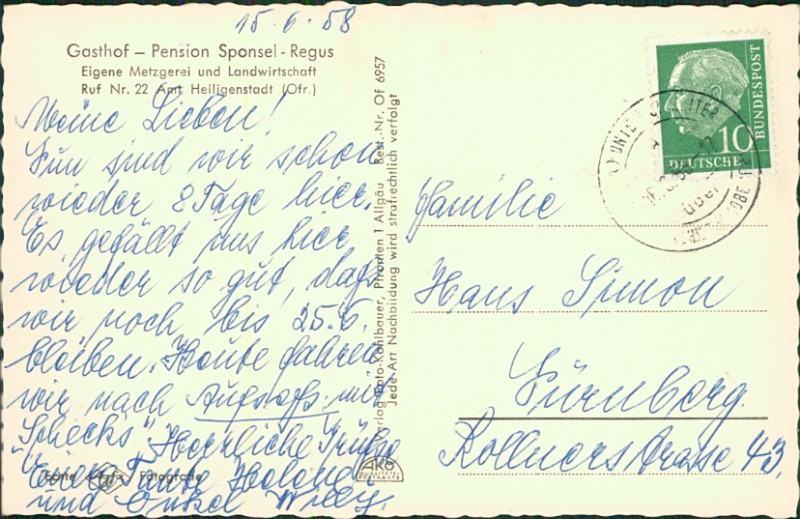 15.6.58
Gasthof – Pension Sponsel-Regus
Eigene Metzgerei und Landwirtschaft
Ruf Nr. 22 Amt Heiligenstadt (Ofr.)
Meine Lieben!
Nun sind wir schon
wieder 8 Tage hier.
Es gefällt uns hier
wieder so gut, daß
wir noch bis 25.6.
bleiben. Heute fahren
wir nach mit
"Schecks". Herzliche Grüße
Tante
und Onkel Willy.
Echte Fotografie
Verlag Foto-Kohlbauer, Pfronten 1 Allgäu Best.-Nr. Of 6957
Jede Art Nachbildung wird strafrechtlich verfolgt
AKO
DEUTSCHE
BUNDESPOST
10
Familie
Hans Simon
Nürnberg.
Kollnerstrasse 43.